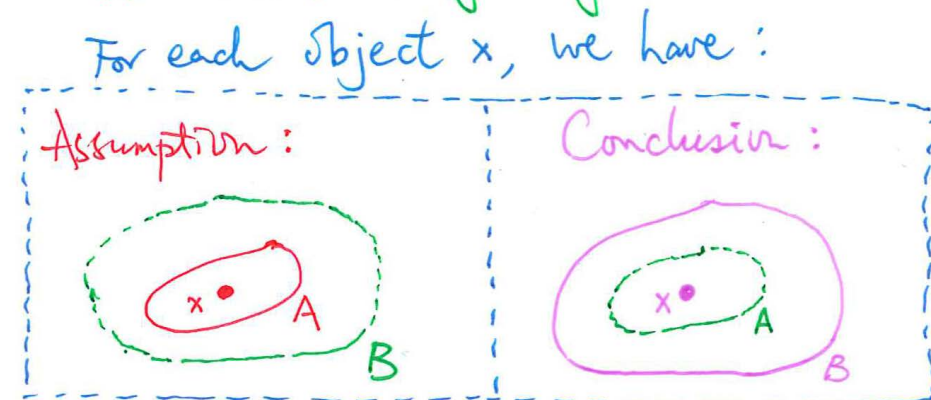 For each object x, we have :
Assumption :
x
A
B
Conclusion :
x
A
B